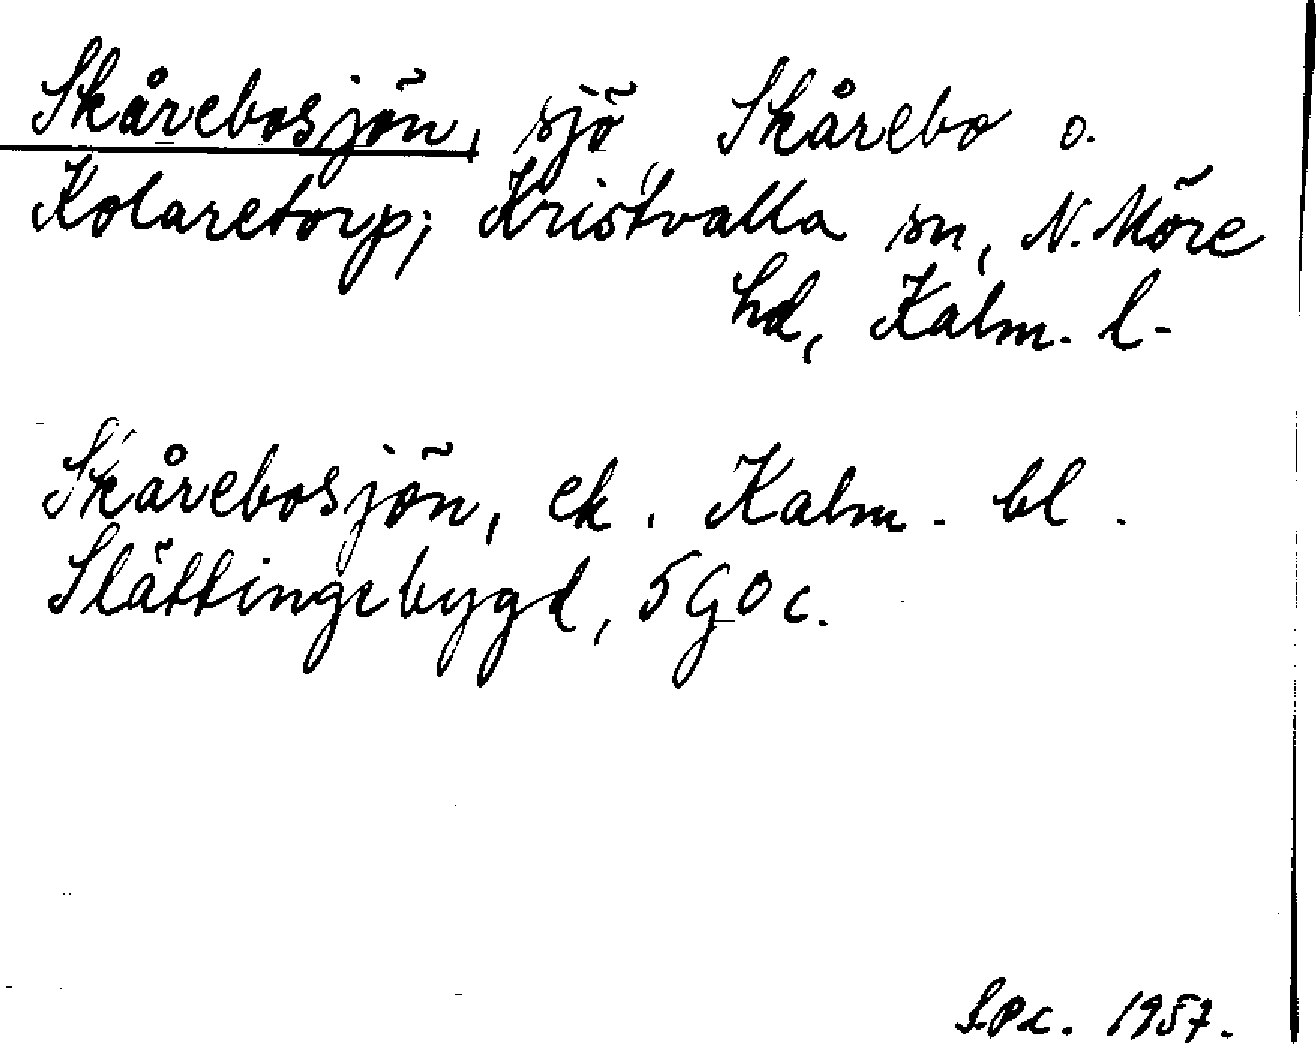 Skårebosjön, sjö, Skårebo o.
Kolaretorp; Kristvalla sn, N. Möre
hd, Kalm. l.
Skårebosjön, ek. Kalm. bl.
Slättingebygd, 5G0c.
1957.